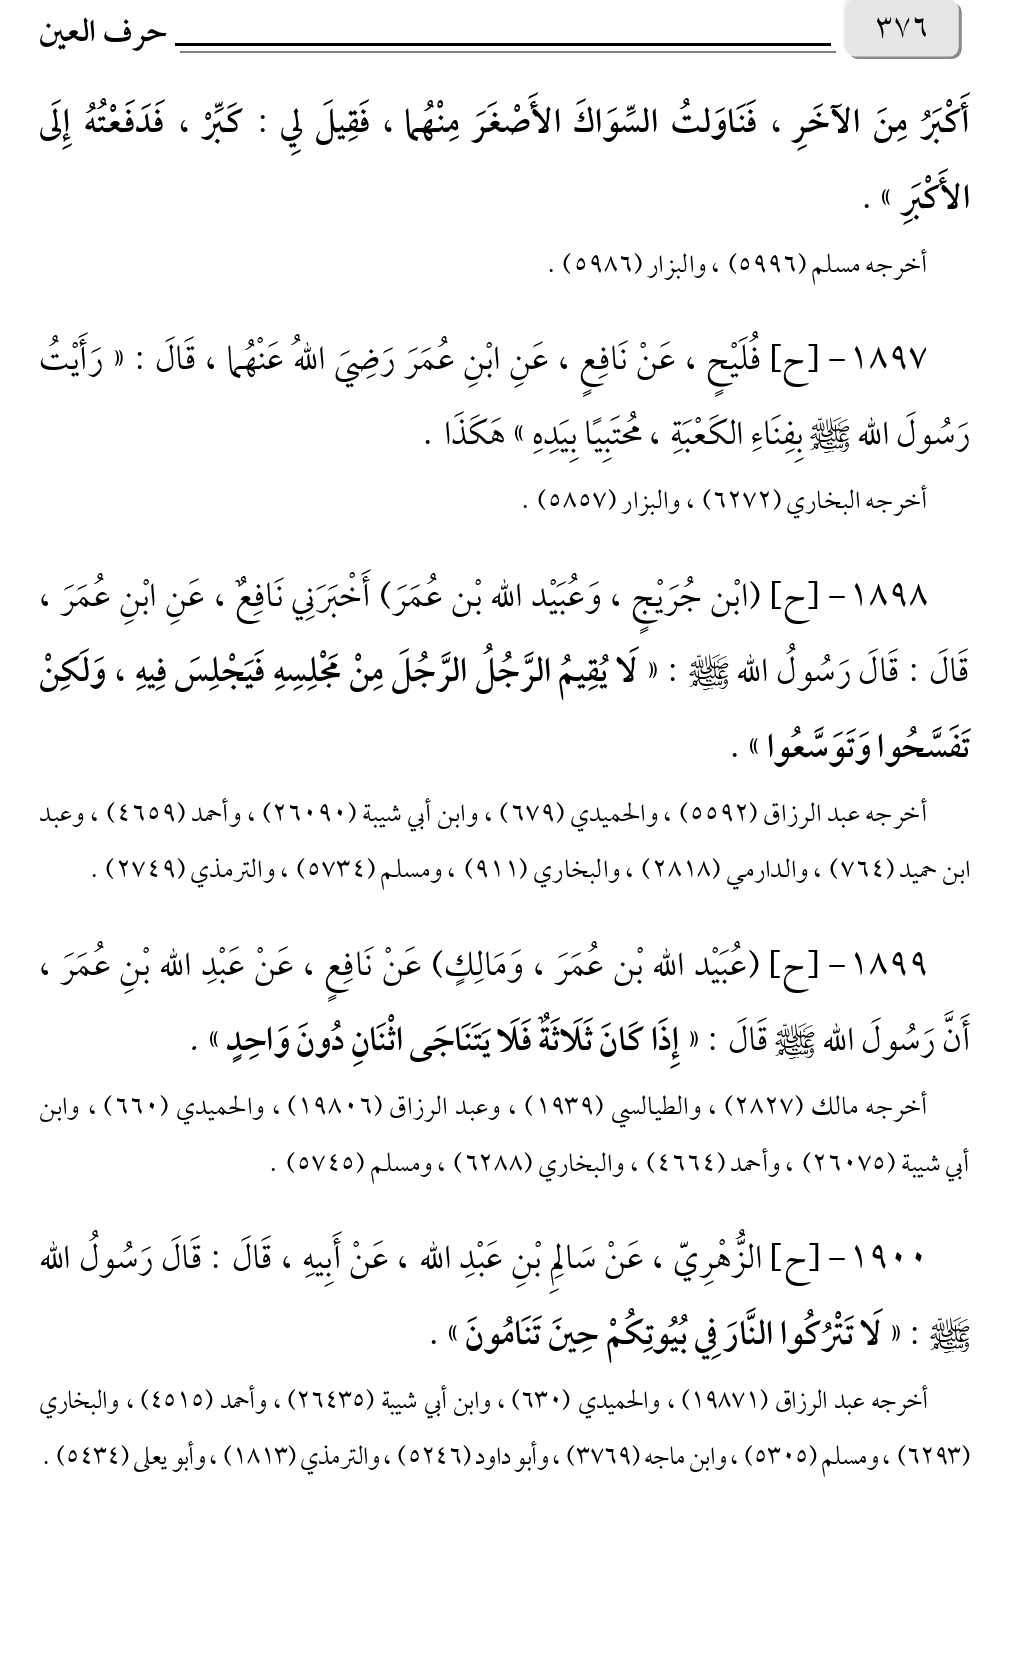 ٣٧٦ حرف العين
أَكْبَرُ مِنَ الآخَرِ ، فَنَاوَلتُ السِّوَاكَ الأَصْغَرَ مِنْهُما ، فَقِيلَ لِي : كَبِّرْ ، فَدَفَعْتُهُ إِلَى
الأَكْبَرِ » .
أخرجه مسلم (٥٩٩٦) ، والبزار (٥٩٨٦) .
١٨٩٧ – [ح] فُلَيْحٍ ، عَنْ نَافِعٍ ، عَنِ ابْنِ عُمَرَ رَضِيَ اللهُ عَنْهُما ، قَالَ : « رَأَيْتُ
رَسُولَ الله ﷺ بِفِنَاءِ الكَعْبَةِ ، مُحتَبِيًا بِيَدِهِ » هَكَذَا .
أخرجه البخاري (٦٢٧٢) ، والبزار (٥٨٥٧) .
١٨٩٨ – [ح] (ابْن جُرَيْجٍ ، وَعُبَيْد الله بْن عُمَرَ) أَخْبَرَنِي نَافِعٌ ، عَنِ ابْنِ عُمَرَ ،
قَالَ : قَالَ رَسُولُ الله ﷺ : « لَا يُقِيمُ الرَّجُلُ الرَّجُلَ مِنْ مَجْلِسِهِ فَيَجْلِسَ فِيهِ ، وَلَكِنْ
تَفَسَّحُوا وَتَوَسَّعُوا » .
أخرجه عبد الرزاق (٥٥٩٢) ، والحميدي (٦٧٩) ، وابن أبي شيبة (٢٦٠٩٠) ، وأحمد (٤٦٥٩) ، وعبد
ابن حميد (٧٦٤) ، والدارمي (٢٨١٨) ، والبخاري (٩١١) ، ومسلم (٥٧٣٤) ، والترمذي (٢٧٤٩) .
١٨٩٩ – [ح] (عُبَيْد الله بْن عُمَرَ ، وَمَالِكٍ) عَنْ نَافِعٍ ، عَنْ عَبْدِ الله بْنِ عُمَرَ ،
أَنَّ رَسُولَ الله ﷺ قَالَ : « إِذَا كَانَ ثَلَاثَةٌ فَلَا يَتَنَاجَى اثْنَانِ دُونَ وَاحِدٍ » .
أخرجه مالك (٢٨٢٧) ، والطيالسي (١٩٣٩) ، وعبد الرزاق (١٩٨٠٦) ، والحميدي (٦٦٠) ، وابن
أبي شيبة (٢٦٠٧٥) ، وأحمد (٤٦٦٤) ، والبخاري (٦٢٨٨) ، ومسلم (٥٧٤٥) .
١٩٠٠ – [ح] الزُّهْرِيّ ، عَنْ سَالِمِ بْنِ عَبْدِ الله ، عَنْ أَبِيهِ ، قَالَ : قَالَ رَسُولُ الله
ﷺ : « لَا تَتْرُكُوا النَّارَ فِي بُيُوتِكُمْ حِينَ تَنَامُونَ » .
أخرجه عبد الرزاق (١٩٨٧١) ، والحميدي (٦٣٠) ، وابن أبي شيبة (٢٦٤٣٥) ، وأحمد (٤٥١٥) ، والبخاري
(٦٢٩٣) ، ومسلم (٥٣٠٥) ، وابن ماجه (٣٧٦٩) ، وأبو داود (٥٢٤٦) ، والترمذي (١٨١٣) ، وأبو يعلى (٥٤٣٤) .